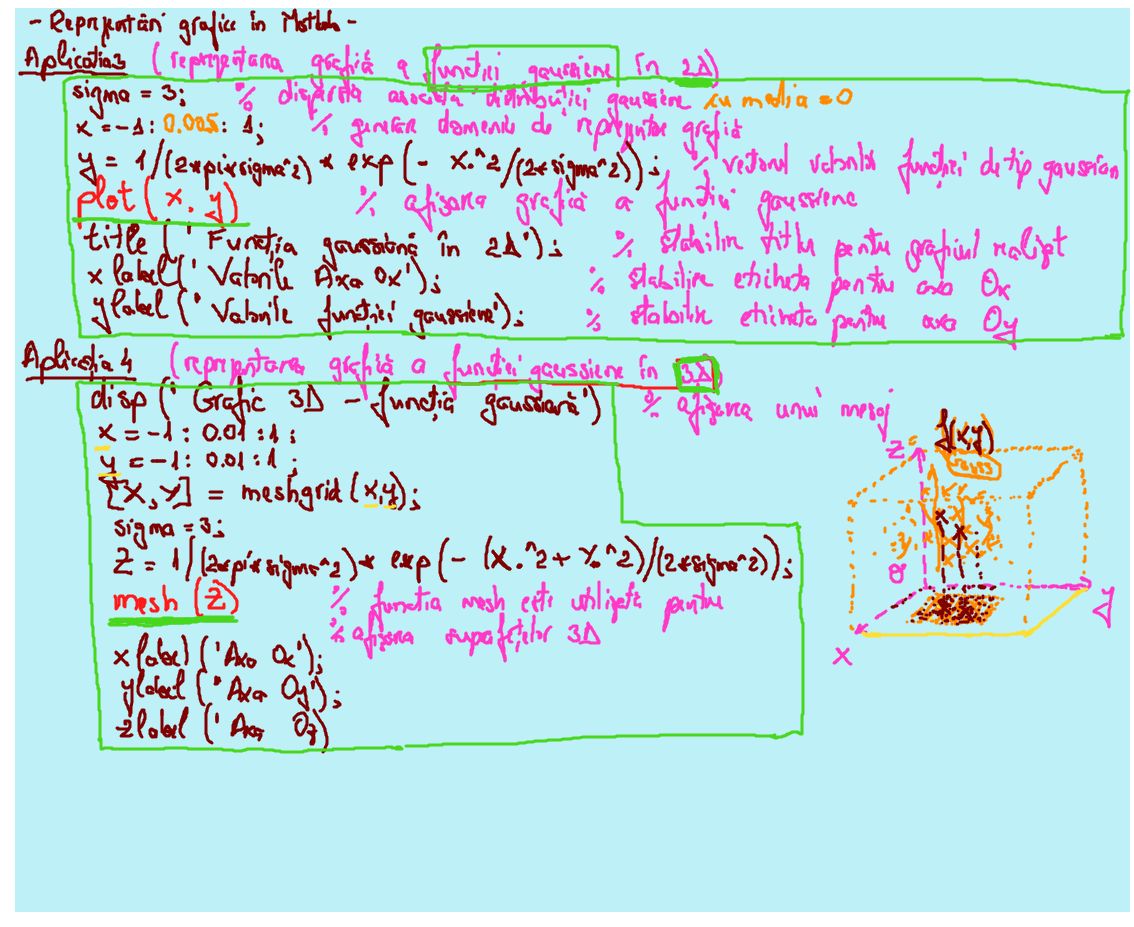 - Reprezentări grafice în Matlab -
Aplicația 3 (reprezentarea grafică a funcției gaussiene în 2D)
sigma = 3; % dispersia asociată distribuției gaussiene cu media = 0
x = -1: 0.005: 1; % generare domeniu de reprezentare grafică
y = 1/(2*pi*sigma^2) * exp(- x.^2/(2*sigma^2)); % vectorul valorilor funcției de tip gaussian
plot(x, y) % afișarea grafică a funcției gaussiene
title (' Funcția gaussiană în 2D'); % stabilire titlu pentru graficul realizat
xlabel(' Valorile Axa Ox'); % stabilire eticheta pentru axa Ox
ylabel (' Valorile funcției gaussiene'); % stabilire eticheta pentru axa Oy
Aplicația 4 (reprezentarea grafică a funcției gaussiene în 3D)
disp (' Grafic 3D - funcția gaussiană') % afișarea unui mesaj
x = -1: 0.01 :1;
y = -1: 0.01 :1;
[X, Y] = meshgrid (x,y);
sigma = 3;
Z = 1/(2*pi*sigma^2)* exp(- (X.^2 + Y.^2)/(2*sigma^2));
mesh (Z) % functia mesh este utilizată pentru
% afișarea suprafețelor 3D
xlabel ('Axa Ox');
ylabel (' Axa Oy');
zlabel (' Axa Oz)
f(x,y)
z
O
y
x